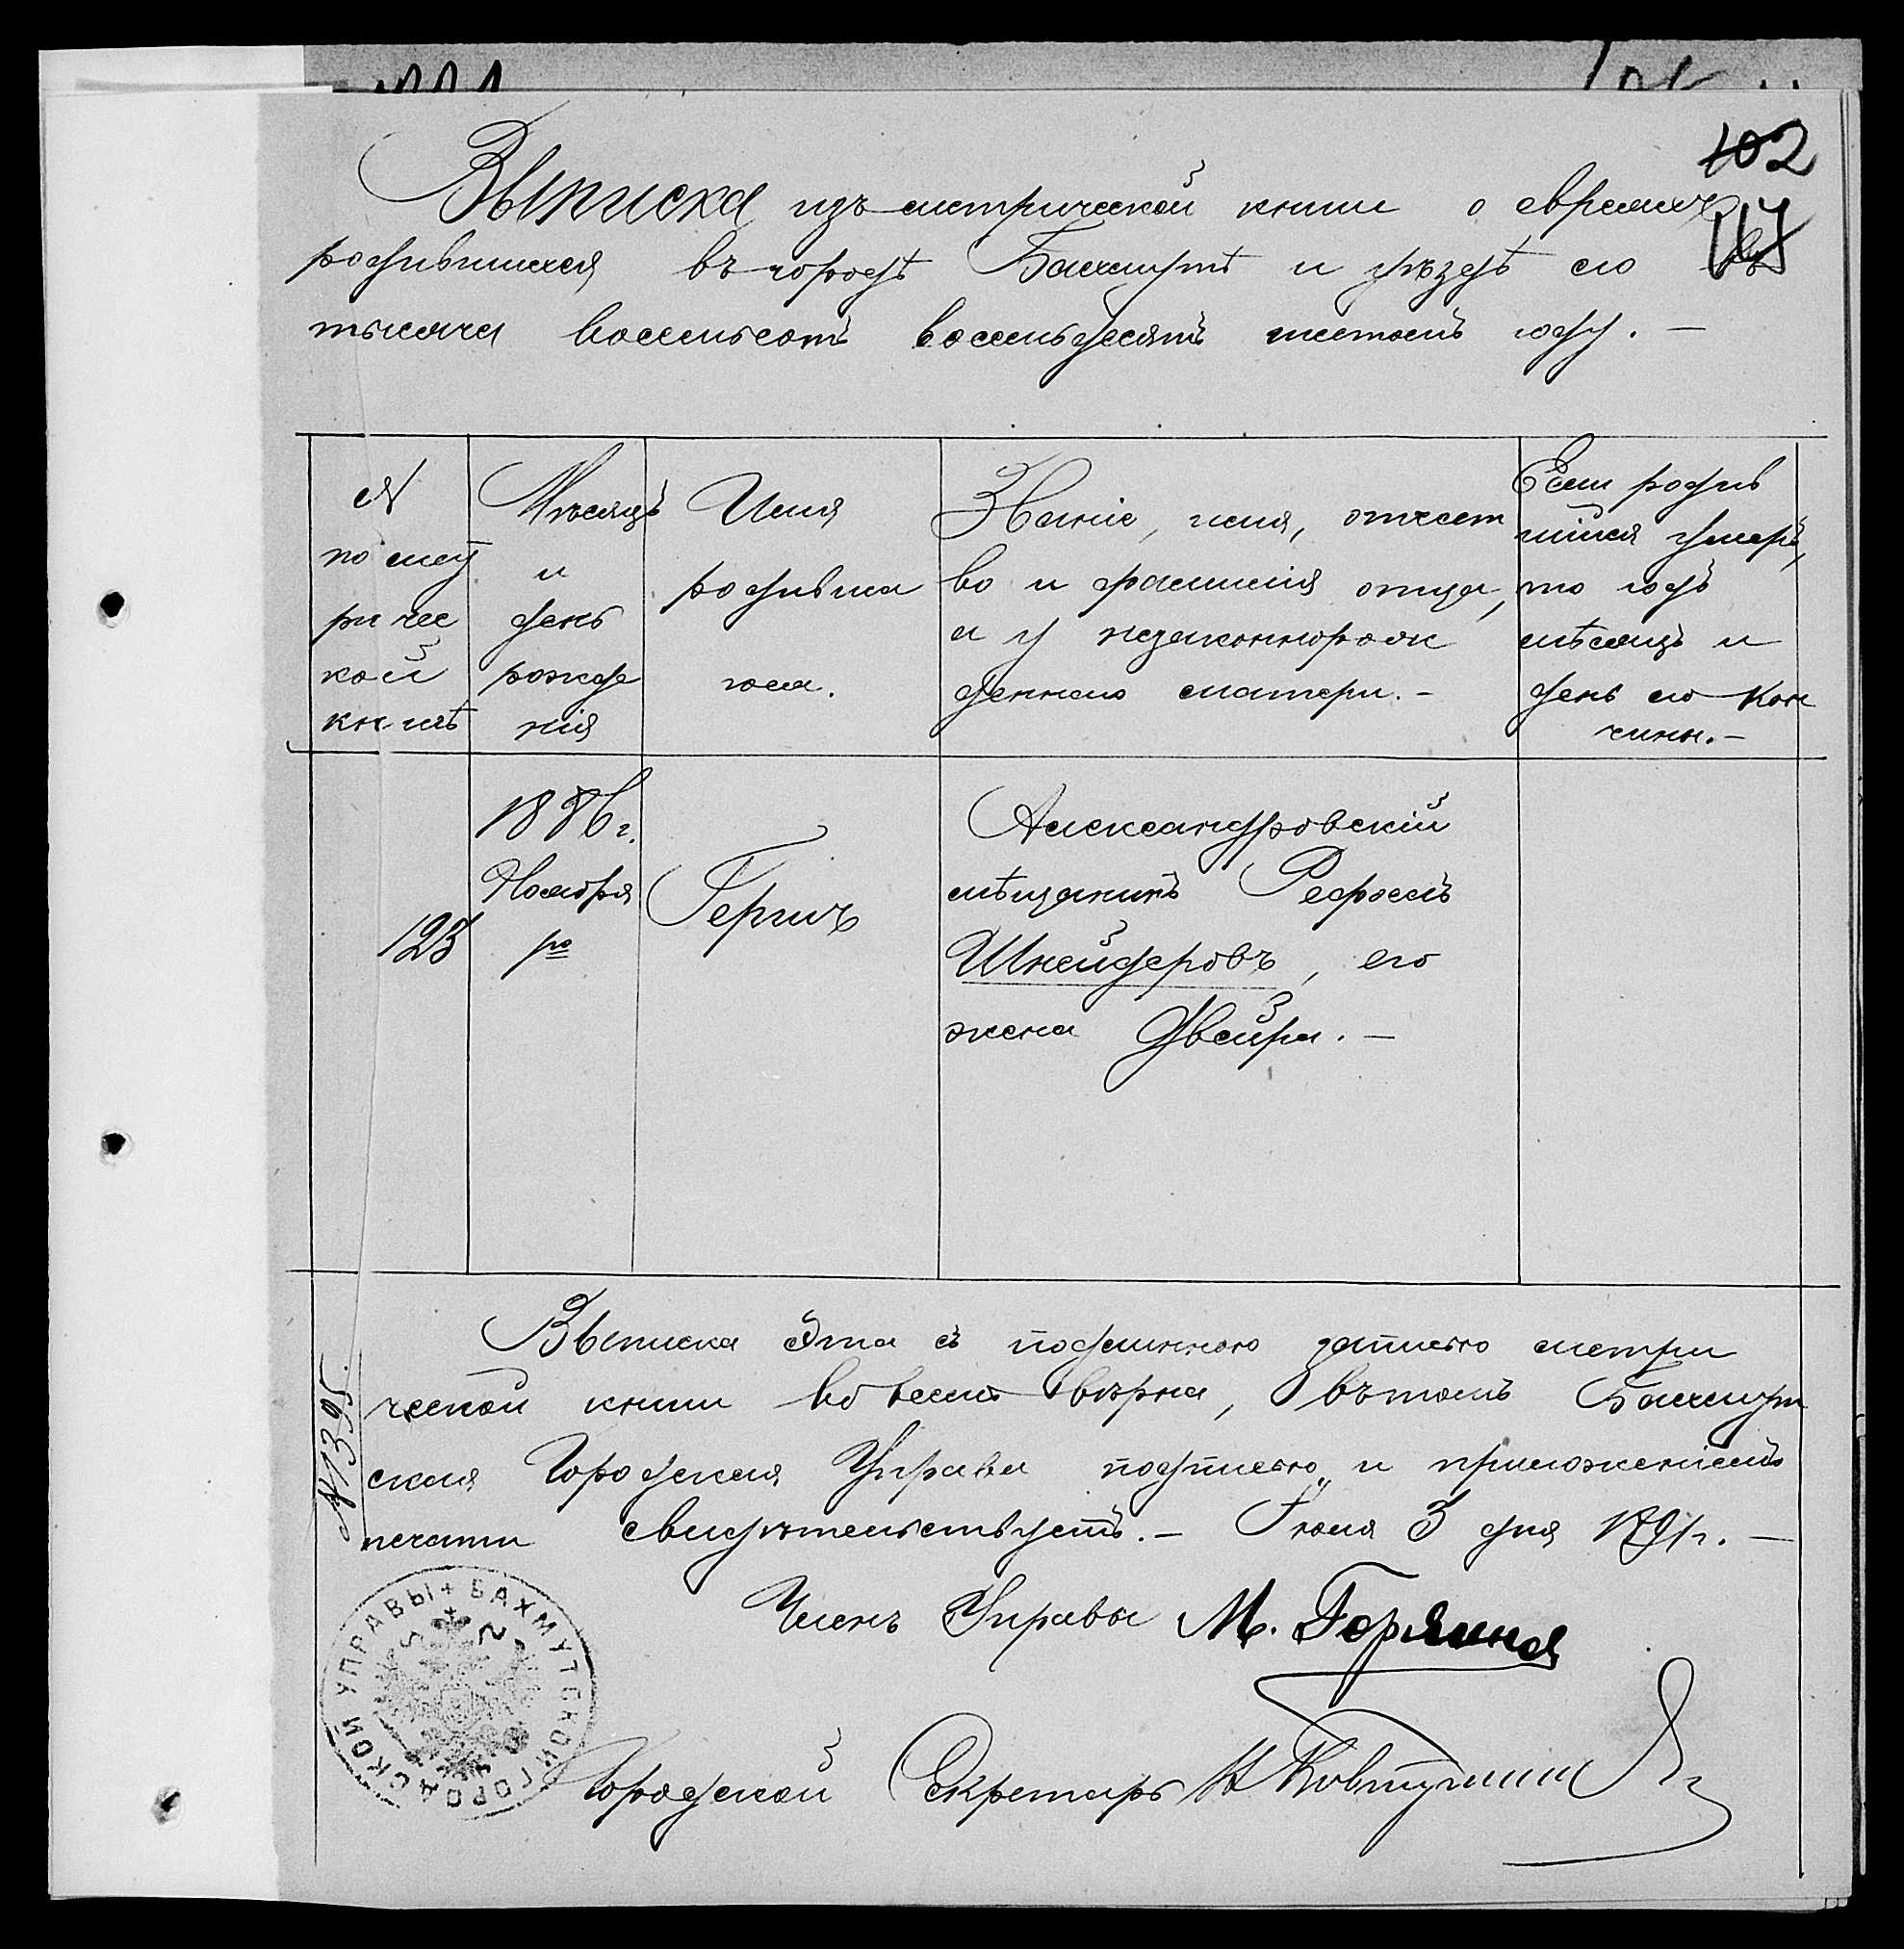 102
117
Выписка изъ метрической книги о евреяхъ
родившихся въ городѣ Бахмутѣ и уѣздѣ его въ
тысяча восемьсотъ восемьдесятъ шестомъ году. —
№
по мет
ричес
кой
книгѣ
Мѣсяцъ
и
день
рожде
нія
Имя
родивша
гося.
Званіе, имя, отчест
во и фамилія отца,
а у незаконнорож
деннаго матери. —
Если родив
шійся умеръ,
то годъ
мѣсяцъ и
день его кон
чины. —
123
1886 г.
Ноября
Гершъ
Александровскій
мѣщанинъ Рефоелъ
Шнейдеровъ, его
жена Двейра. —
Выписка эта съ подлинною записью метри
ческой книги во всемъ вѣрна, въ томъ Бахмут
ская Городская Управа подписью и приложеніемъ
печати свидѣтельствуетъ. — Іюля 3 дня 1891 г. —
№ 1395.
Членъ Управы М.
Городской Секретарь
БАХМУТСКОЙ ГОРОДСКОЙ УПРАВЫ